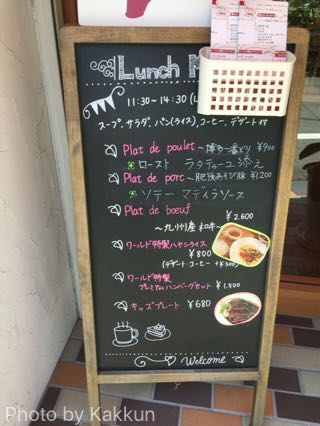 Lunch M
11:30~14:30 (L
スープ、サラダ、パン(ライス)、コーヒー、デザート付
Plat de poulet ~博多一番どり ¥900
ロースト ラタティーユ添え
Plat de porc ~肥後あそび豚 ¥1200
ソテー マディラソース
Plat de bœuf ¥2.600
~九州産和牛~
ワールド特製ハヤシライス
¥800
(デザート コーヒー +¥300)
ワールド特製
プレミアムハンバーグセット ¥1.500
キッズプレート ¥680
Welcome
Photo by Kakkun